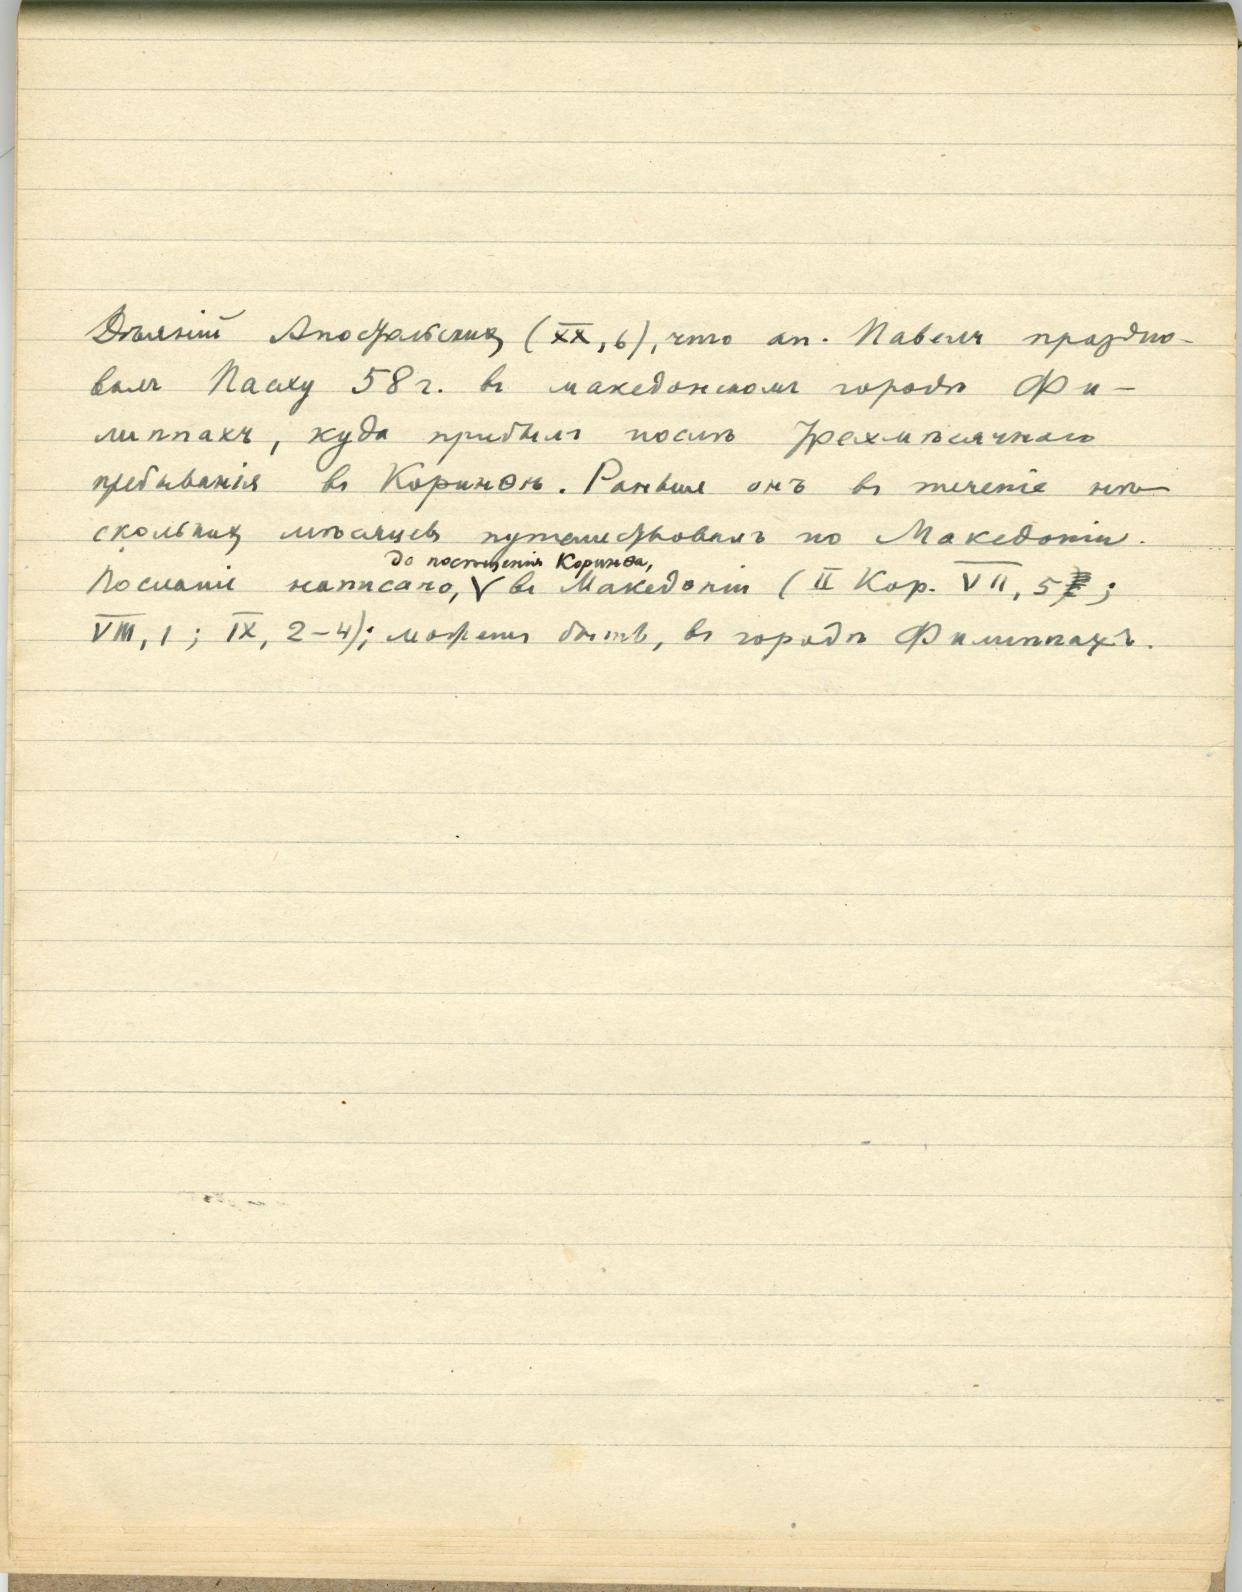 Дѣяній Апостольскихъ (XX, 6), что ап. Павелъ праздно-
валъ Пасху 58 г. въ македонскомъ городѣ Фи-
липпахъ, куда прибылъ послѣ трехмѣсячнаго
пребыванія въ Коринѳѣ. Раньше онъ въ теченіе нѣ-
сколькихъ мѣсяцевъ путешествовалъ по Македоніи.
до посѣщенія Коринѳа,
Посланіе написано, V въ Македоніи (II Кор. VII, 5;
VIII, 1; IX, 2-4); можетъ быть, въ городѣ Филиппахъ.